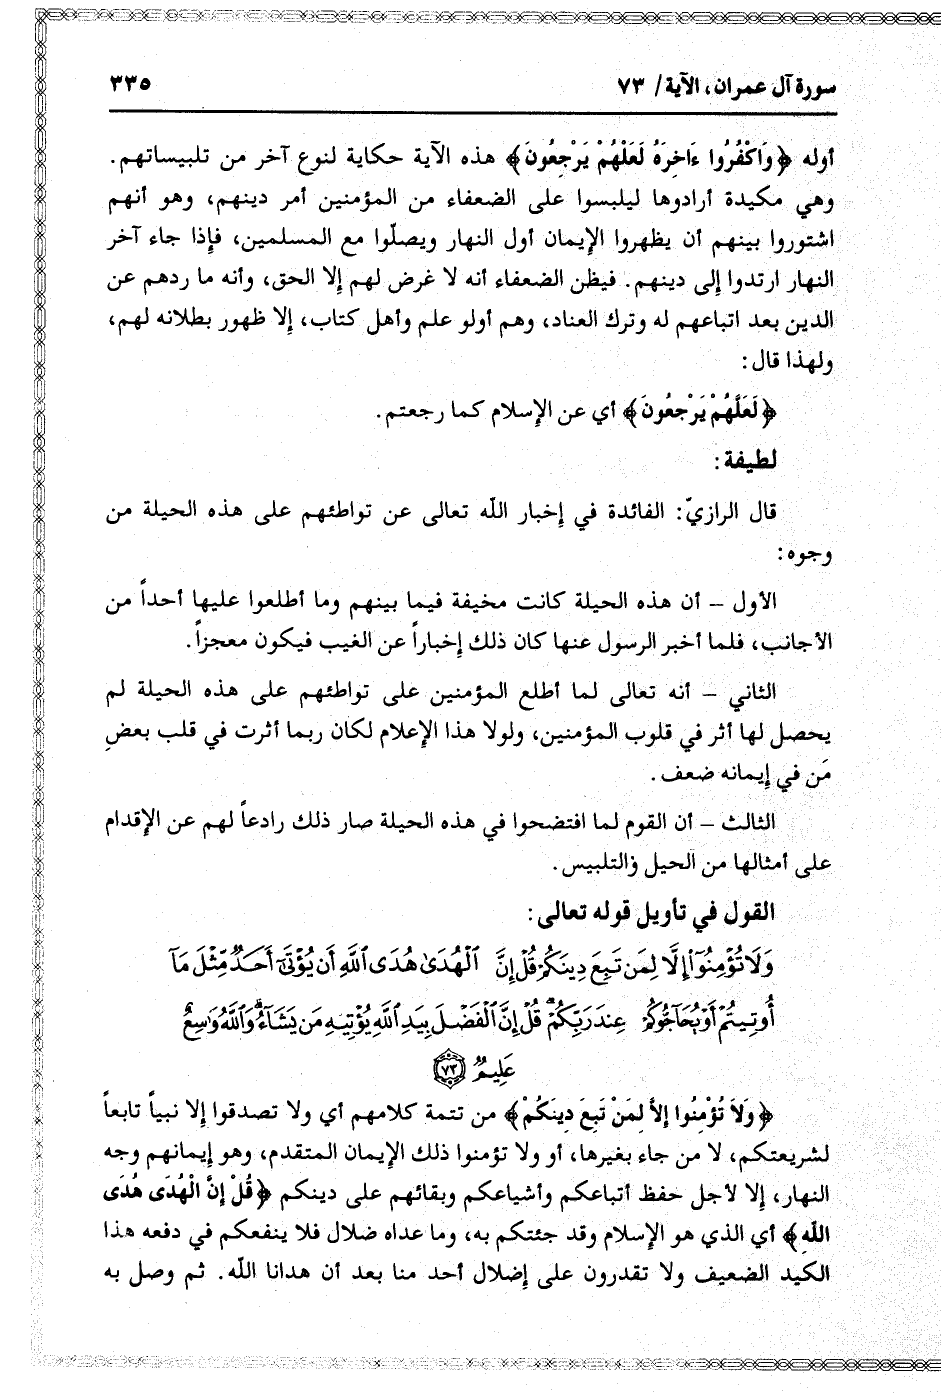 سورة آل عمران، الآية/ ٧٣ ٣٣٥
أوله ﴿وَاكْفُرُوا ءَاخِرَهُ لَعَلَّهُمْ يَرْجِعُونَ﴾ هذه الآية حكاية لنوع آخر من تلبيساتهم.
وهي مكيدة أرادوها ليلبسوا على الضعفاء من المؤمنين أمر دينهم، وهو أنهم
اشتوروا بينهم أن يظهروا الإيمان أول النهار ويصلّوا مع المسلمين، فإذا جاء آخر
النهار ارتدوا إلى دينهم. فيظن الضعفاء أنه لا غرض لهم إلا الحق، وأنه ما ردهم عن
الدين بعد اتباعهم له وترك العناد، وهم أولو علم وأهل كتاب، إلا ظهور بطلانه لهم،
ولهذا قال:
﴿لَعَلَّهُمْ يَرْجِعُونَ﴾ أي عن الإسلام كما رجعتم.
لطيفة:
قال الرازيّ: الفائدة في إخبار اللّه تعالى عن تواطئهم على هذه الحيلة من
وجوه:
الأول – أن هذه الحيلة كانت مخيفة فيما بينهم وما أطلعوا عليها أحداً من
الأجانب، فلما أخبر الرسول عنها كان ذلك إخباراً عن الغيب فيكون معجزاً.
الثاني – أنه تعالى لما أطلع المؤمنين على تواطئهم على هذه الحيلة لم
يحصل لها أثر في قلوب المؤمنين، ولولا هذا الإعلام لكان ربما أثرت في قلب بعضِ
مَن في إيمانه ضعف.
الثالث – أن القوم لما افتضحوا في هذه الحيلة صار ذلك رادعاً لهم عن الإقدام
على أمثالها من الحيل والتلبيس.
القول في تأويل قوله تعالى:
وَلَا تُؤْمِنُوٓا۟ إِلَّا لِمَن تَبِعَ دِينَكُمْ قُلْ إِنَّ ٱلْهُدَىٰ هُدَى ٱللَّهِ أَن يُؤْتَىٰٓ أَحَدٌ مِّثْلَ مَآ
أُوتِيتُمْ أَوْ يُحَآجُّوكُمْ عِندَ رَبِّكُمْ ۗ قُلْ إِنَّ ٱلْفَضْلَ بِيَدِ ٱللَّهِ يُؤْتِيهِ مَن يَشَآءُ ۗ وَٱللَّهُ وَٰسِعٌ
عَلِيمٌ ٧٣
﴿وَلاَ تُؤْمِنُوا إِلاَّ لِمَنْ تَبِعَ دِينَكُمْ﴾ من تتمة كلامهم أي ولا تصدقوا إلا نبياً تابعاً
لشريعتكم، لا من جاء بغيرها، أو ولا تؤمنوا ذلك الإيمان المتقدم، وهو إيمانهم وجه
النهار، إلا لأجل حفظ أتباعكم وأشياعكم وبقائهم على دينكم ﴿قُلْ إِنَّ الْهُدَى هُدَى
اللّهِ﴾ أي الذي هو الإسلام وقد جئتكم به، وما عداه ضلال فلا ينفعكم في دفعه هذا
الكيد الضعيف ولا تقدرون على إضلال أحد منا بعد أن هدانا اللّه. ثم وصل به